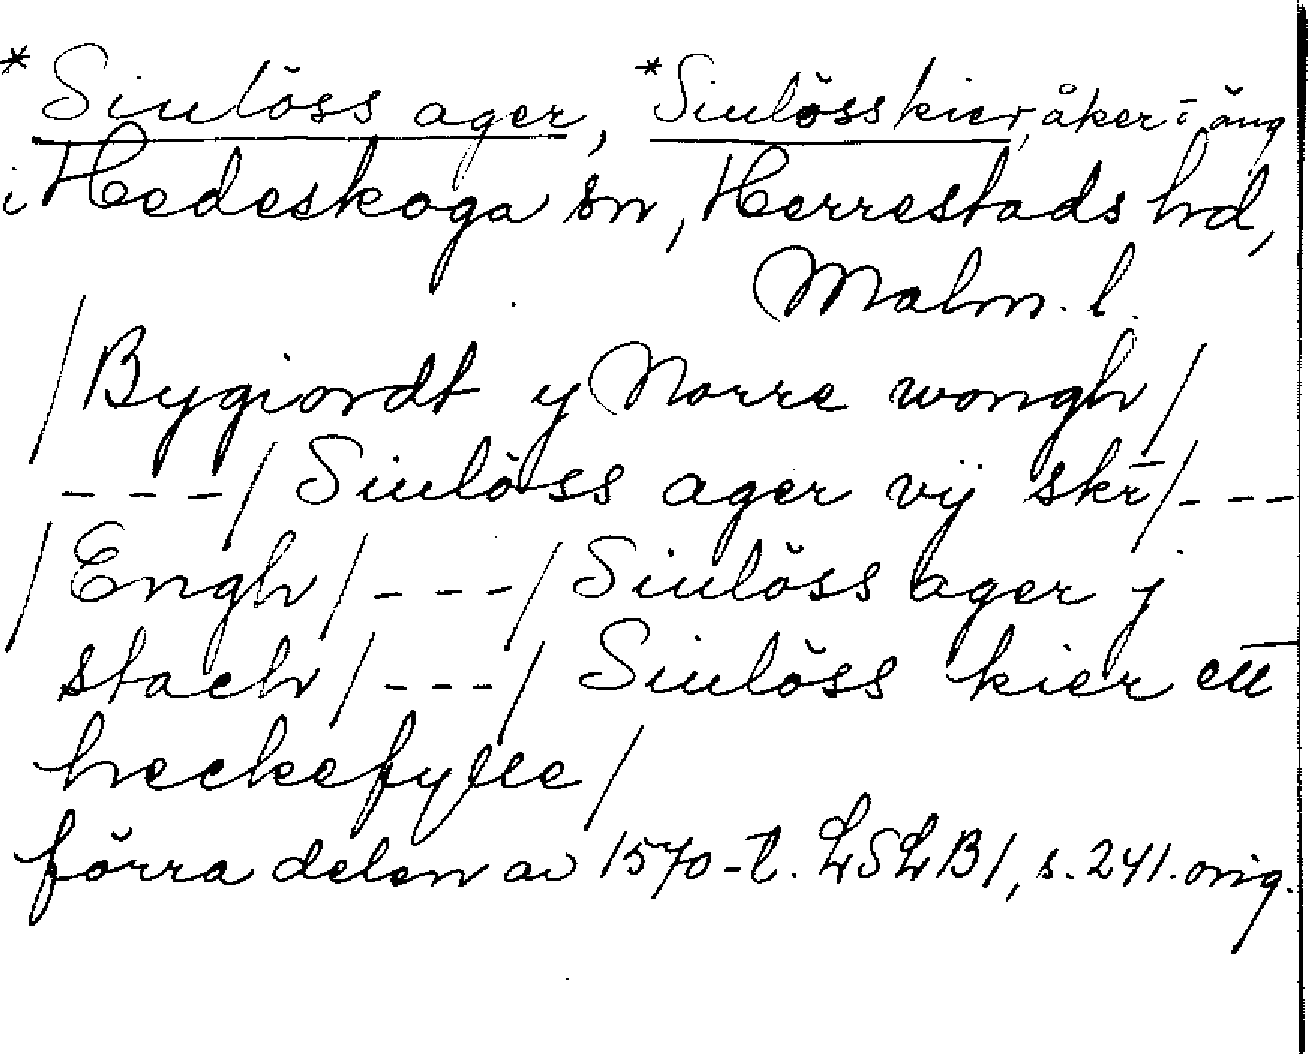 *Siulöss ager, *Siulösskier, åker= äng
i Hedeskoga sn, Herrestads hd,
Malm. l.
/Bygiordt y Norre wongh/
---/Siulöss ager vij skr̄/---
/Engh/---/Siulöss ager j
stach/---/Siulöss kier ett
heckefylle/
förra delen av 1570-t. LSLB1, s. 241. orig.